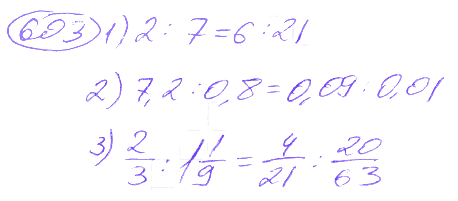 603 1) 2 : 7 = 6 : 21
2) 7,2 : 0,8 = 0,09 : 0,01
3) 2/3 : 1 1/9 = 4/21 : 20/63